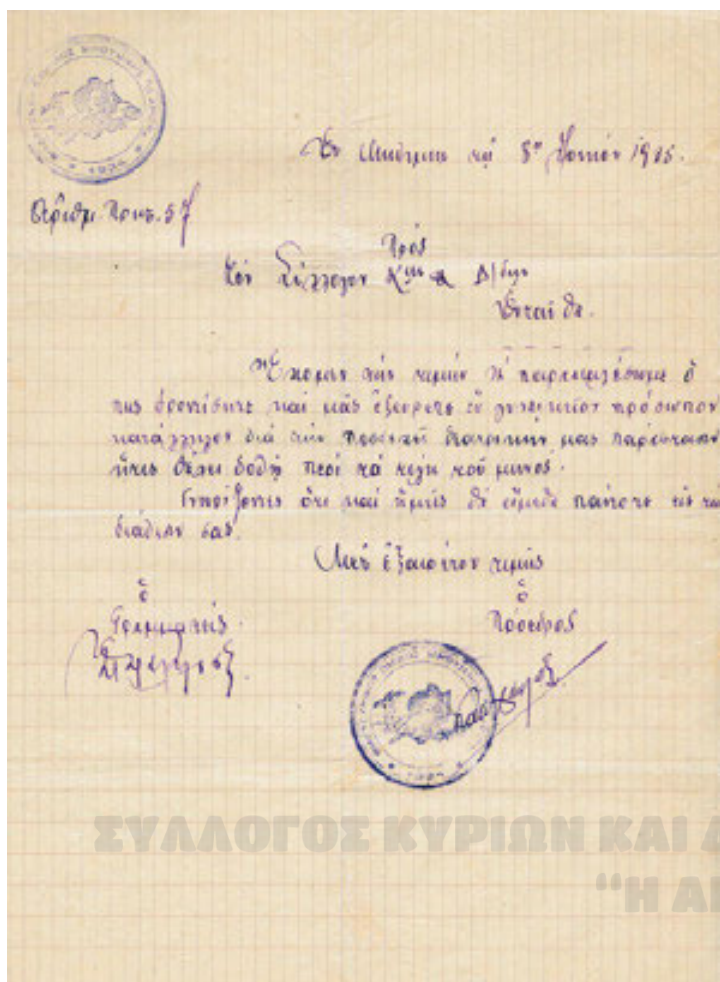 Ἐν Μυκόνῳ τῇ 8ῃ Ἰουνίου 19
Ἀριθμ. Πρωτ. 57
Πρός
τόν Σύλλογον Κυιῶν & Δ/δων
Ἐνταῦθα.
Ἔχομεν τήν τιμήν νά παρακαλέσωμεν ὅ
πως φροντίσητε καί μᾶς ἐξεύρετε ἕν γυναικεῖον πρόσωπον
κατάλληλον διά τήν θεατρικήν μας παράστασιν
ἥτις θέλει δοθῇ περί τά τέλη τοῦ μηνός.
Γνωρίζοντες ὅτι καί ἡμεῖς θά εἴμεθα πάντοτε εἰς τὴν
διάθεσιν σας.
Μετ' ἐξαιρέτου τιμῆς
ὁ ὁ
Γραμματεύς Πρόεδρος
ΣΥΛΛΟΓΟΣ ΚΥΡΙΩΝ ΚΑΙ Δ
"Η